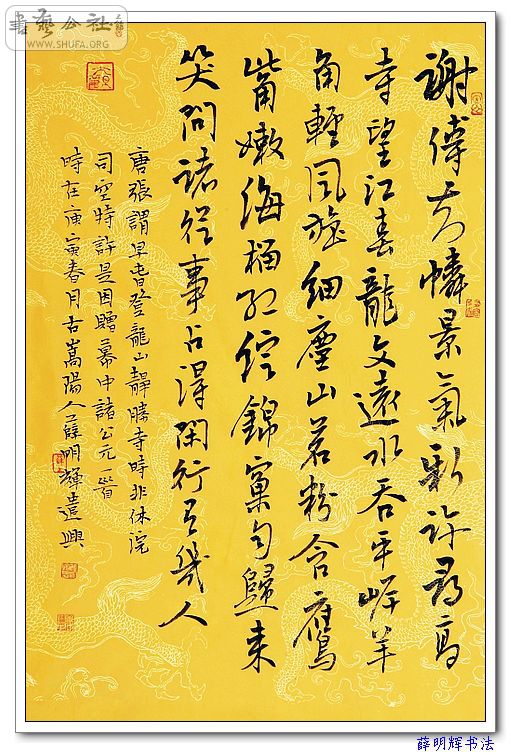 書藝公社
WWW.SHUFA.ORG
謝傅知憐景氣新許尋高
寺望江春龍文遠水吞平岸羊
角輕風旋細塵山茗粉含鷹
觜嫩海榴紅綻錦窠勻歸來
笑問諸從事占得閑行有幾人
唐張謂早春登龍山靜勝寺時非休浣
司空特許是因贈幕中諸公元一首
時在庚寅春月古嵩陽人薛明輝遣興
薛明辉书法